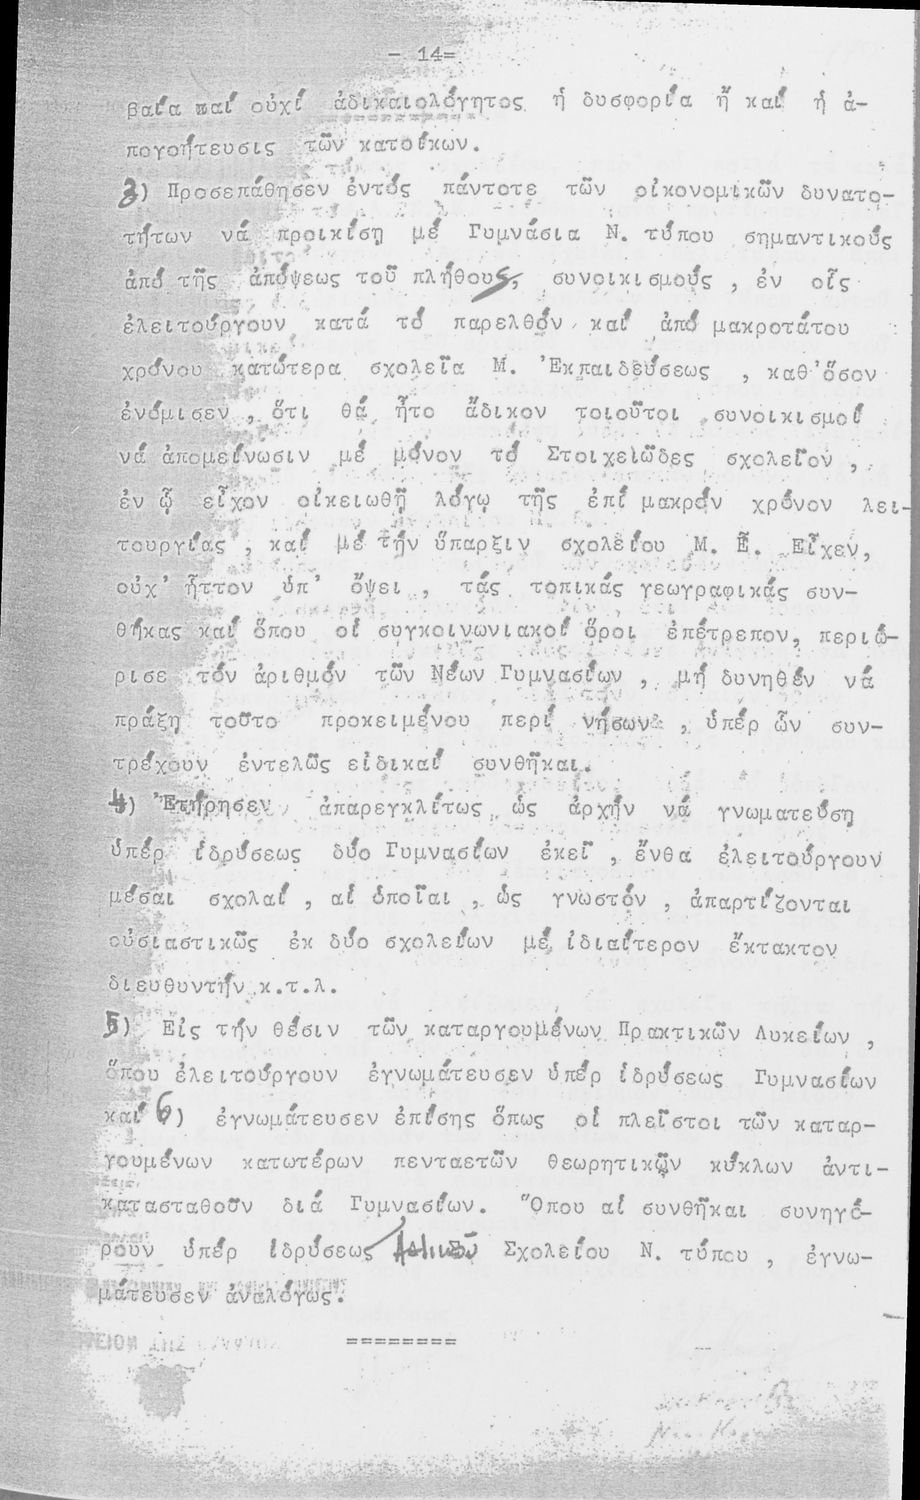 - 14=
βαία καί οὐχί ἀδικαιολόγητος ἡ δυσφορία ἤ καί ἡ ἀ-
πογοήτευσις τῶν κατοίκων.
3) Προσεπάθησεν ἐντός πάντοτε τῶν οἰκονομικῶν δυνατο-
τήτων νά προικίσῃ μέ Γυμνάσια Ν. τύπου σημαντικούς
ἀπό τῆς ἀπόψεως τοῦ πλήθους, συνοικισμούς , ἐν οἷς
ἐλειτούργουν κατά τό παρελθόν καί ἀπό μακροτάτου
χρόνου κατώτερα σχολεῖα Μ. Ἐκπαιδεύσεως , καθ'ὅσον
ἐνόμισεν , ὅτι θά ἦτο ἄδικον τοιοῦτοι συνοικισμοί
νά ἀπομείνωσιν μέ μόνον τό Στοιχειῶδες σχολεῖον ,
ἐν ᾧ εἶχον οἰκειωθῆ λόγῳ τῆς ἐπί μακρόν χρόνον λει-
τουργίας , καί μέ τήν ὕπαρξιν σχολείου Μ. Ἐ. Εἶχεν,
οὐχ' ἧττον ὑπ' ὄψει , τάς τοπικάς γεωγραφικάς συν-
θήκας καί ὅπου οἱ συγκοινωνιακοί ὅροι ἐπέτρεπον, περιώ-
ρισε τόν ἀριθμόν τῶν Νέων Γυμνασίων , μή δυνηθέν νά
πράξῃ τοῦτο προκειμένου περί νήσων , ὑπέρ ὧν συν-
τρέχουν ἐντελῶς εἰδικαί συνθῆκαι.
4) Ἐτήρησεν ἀπαρεγκλίτως ὡς ἀρχήν νά γνωματεύσῃ
ὑπέρ ἱδρύσεως δύο Γυμνασίων ἐκεῖ , ἔνθα ἐλειτούργουν
μέσαι σχολαί , αἱ ὁποῖαι , ὡς γνωστόν , ἀπαρτίζονται
οὐσιαστικῶς ἐκ δύο σχολείων μέ ἰδιαίτερον ἔκτακτον
διευθυντήν κ.τ.λ.
5) Εἰς τήν θέσιν τῶν καταργουμένων Πρακτικῶν Λυκείων ,
ὅπου ἐλειτούργουν ἐγνωμάτευσεν ὑπέρ ἱδρύσεως Γυμνασίων
καί 6) ἐγνωμάτευσεν ἐπίσης ὅπως οἱ πλεῖστοι τῶν καταρ-
γουμένων κατωτέρων πενταετῶν θεωρητικῶν κύκλων ἀντι-
κατασταθοῦν διά Γυμνασίων. Ὅπου αἱ συνθῆκαι συνηγό-
ρουν ὑπέρ ἱδρύσεως Σχολείου Ν. τύπου , ἐγνω-
μάτευσεν ἀναλόγως.
========